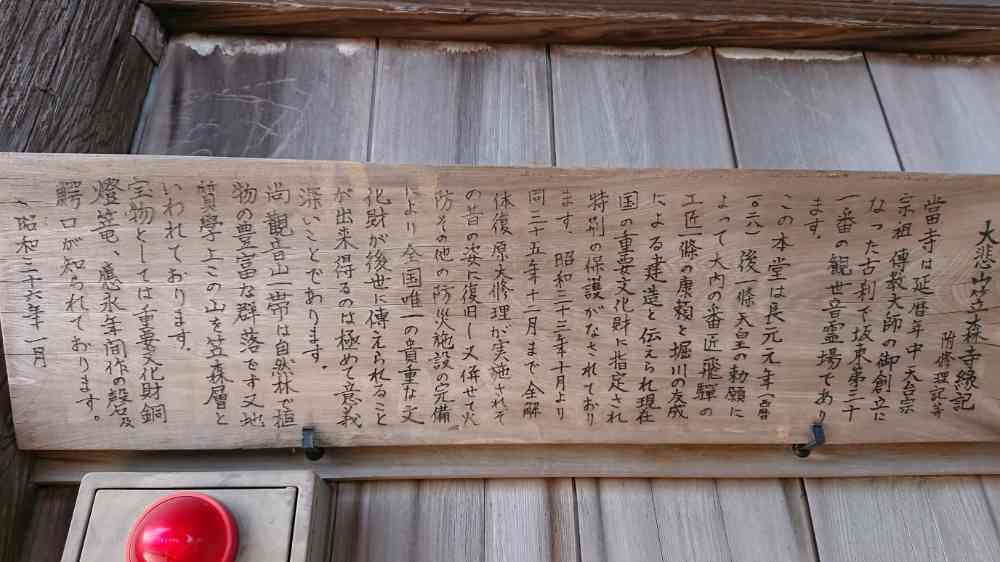 大悲山笠森寺縁記
附修理記等
當寺は延暦年中 天台宗
宗祖 傳教大師の御創立に
なった古刹で坂東第三十
一番の観世音霊場であり
ます。
この本堂は長元元年(西暦
一〇二八) 後一條天皇の勅願に
よって大内の番匠飛騨の
工匠一條の康頼と堀川の友成
による建造と伝えられ現在
国の重要文化財に指定され
特別の保護がなされており
ます。 昭和三十三年十月より
同三十五年十二月まで全解
体復原大修理が実施されそ
の昔の姿に復旧し又併せて火
防その他の防災施設の完備
により全国唯一の貴重な文
化財が後世に傳えられること
が出来得るのは極めて意義
深いことであります。
尚 観音山一帯は自然林で植
物の豊富な群落です又地
質學上この山を笠森層と
いわれております。
宝物としては重要文化財銅
燈篭、應永年間作の磬及
鰐口が知られております。
昭和三十六年一月